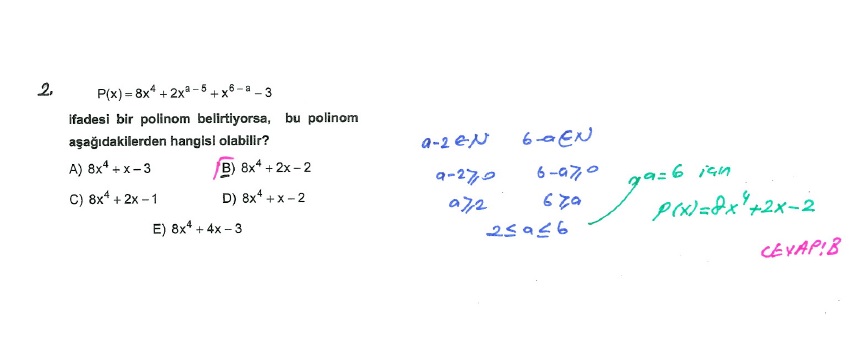 2.
P(x) = 8x⁴ + 2xᵃ⁻⁵ + x⁶⁻ᵃ – 3
ifadesi bir polinom belirtiyorsa, bu polinom
aşağıdakilerden hangisi olabilir?
A) 8x⁴ + x – 3
B) 8x⁴ + 2x – 2
C) 8x⁴ + 2x – 1
D) 8x⁴ + x – 2
E) 8x⁴ + 4x – 3
a-2 ∈ N 6-a ∈ N
a-2 ≥ 0 6-a ≥ 0
a ≥ 2 6 ≥ a
2 ≤ a ≤ 6
a=6 için
P(x)=8x⁴+2x-2
CEVAP:B